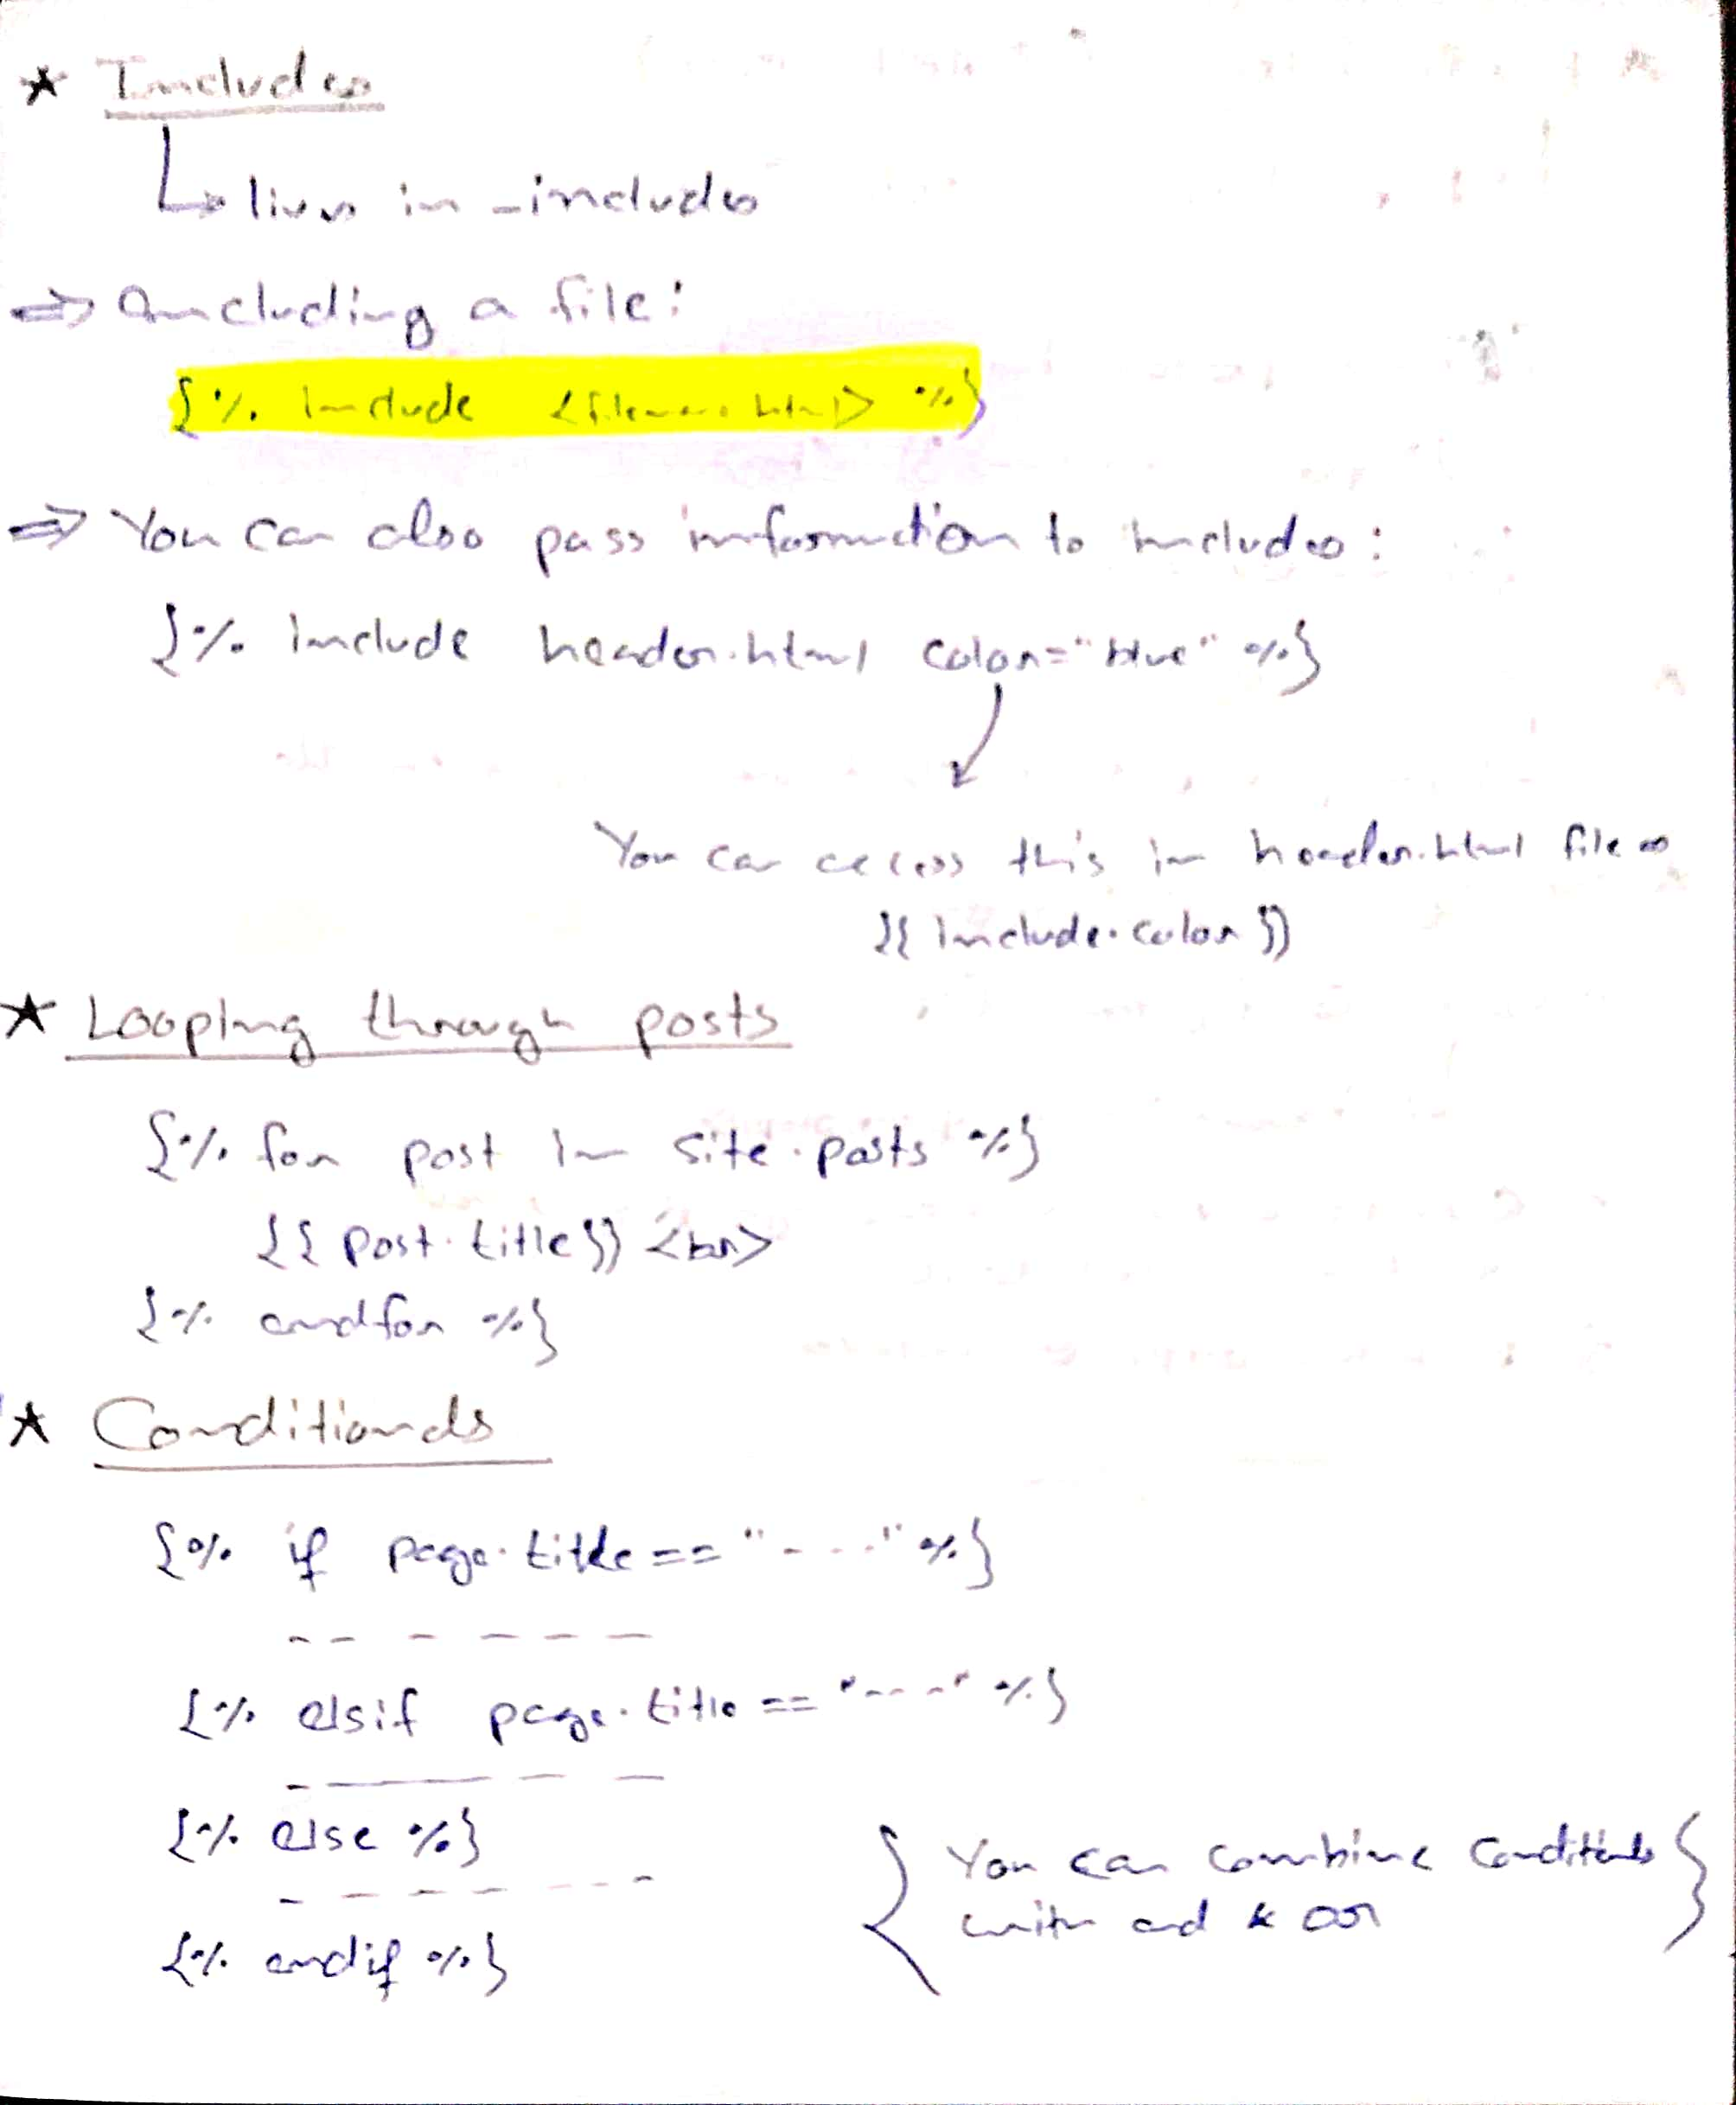 ★ Includes
↳ lives in _includes
⇒ Including a file:
{% include <filename.html> %}
⇒ You can also pass information to includes:
{% include header.html color="blue" %}
You can access this in header.html file as
{{ include.color }}
★ Looping through posts
{% for post in site.posts %}
{{ post.title }} <br>
{% endfor %}
★ Conditionals
{% if page.title == "----" %}
-- - - - -
{% elsif page.title == "----" %}
- --- - -
{% else %}
- - - - - - -
{% endif %}
{ You can combine conditionals }
with and & or